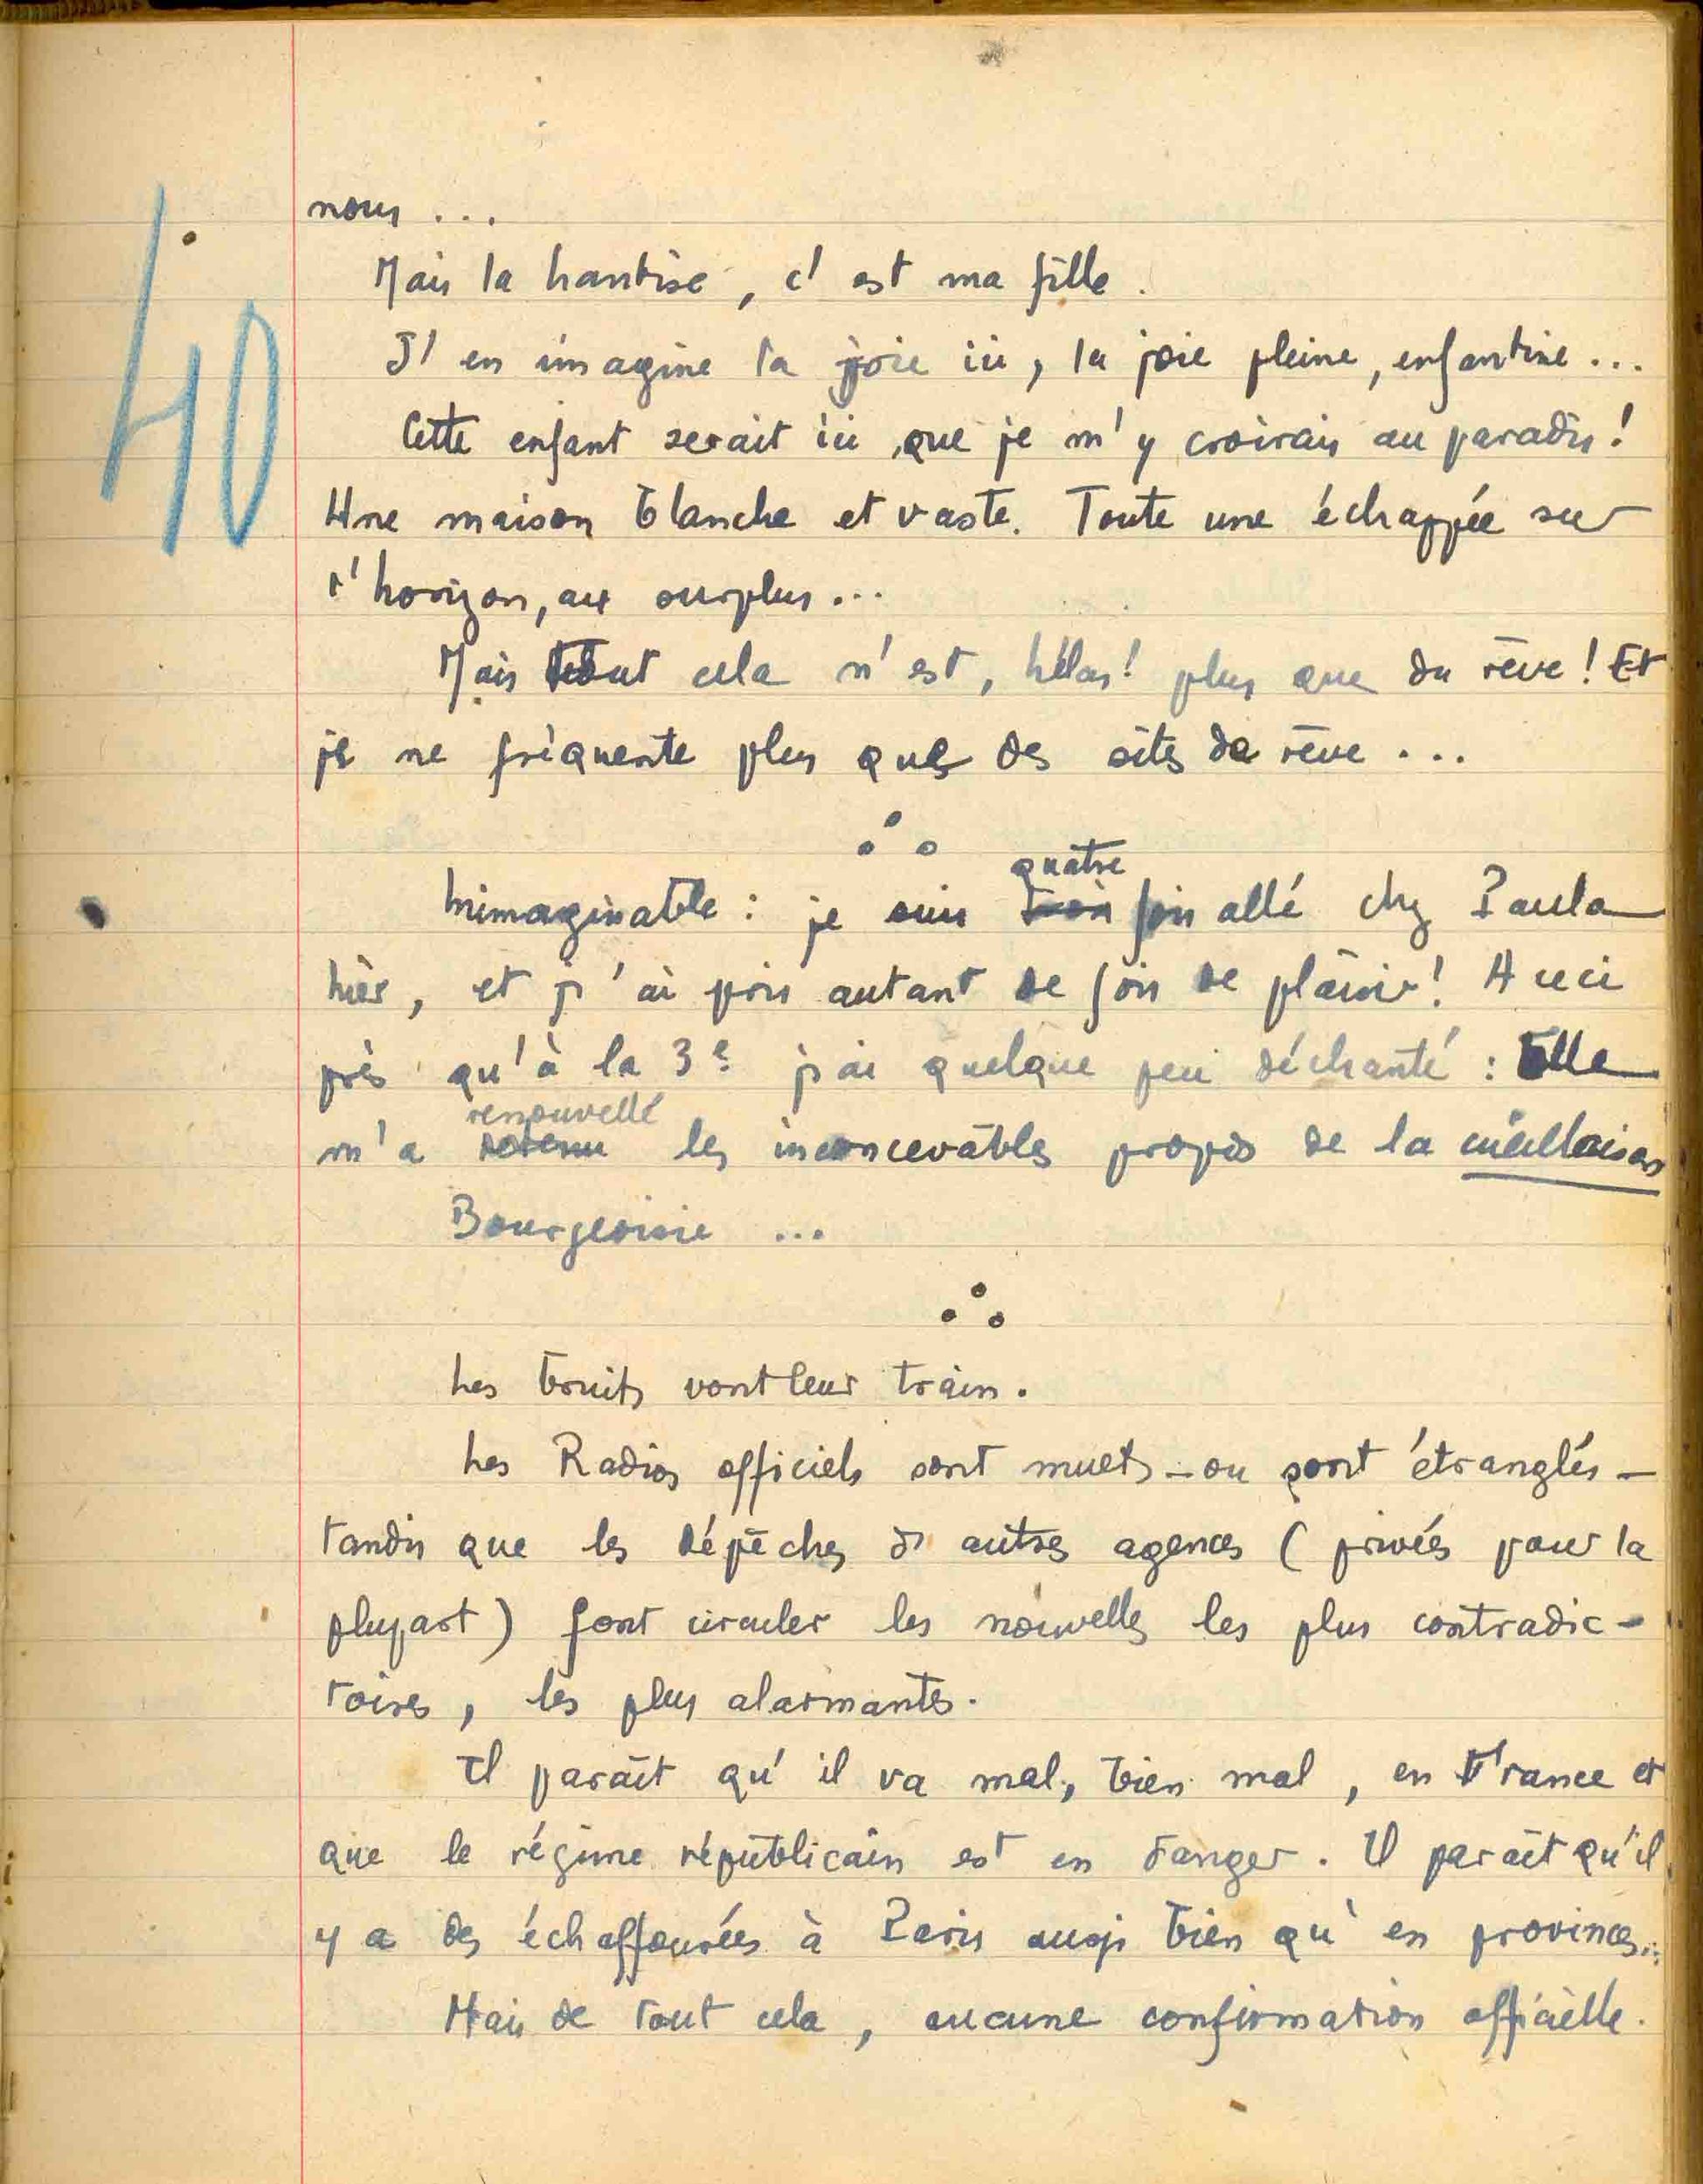 40
nous ...
Mais la hantise, c'est ma fille.
J'en imagine la joie ici, la joie pleine, enfantine ...
Cette enfant serait ici, que je m'y croirais au paradis!
Une maison blanche et vaste. Toute une échappée sur
l'horizon, au surplus ...
Mais tout cela n'est, hélas! plus que du rêve! Et
je ne fréquente plus que des sites de rêve ...
quatre
Inimaginable: je suis trois fois allé chez Paula
hier, et j'ai pris autant de fois de plaisir! A ceci
près qu'à la 3e j'ai quelque peu déchanté: Elle
renouvellé
m'a les inconcevables propos de la
Bourgeoisie ...
Les bruits vont leur train.
Les Radios officiels sont muets - ou sont étranglés -
tandis que les dépêches d'autres agences (privées pour la
plupart) font circuler les nouvelles les plus contradic-
toires, les plus alarmantes.
Il paraît qu'il va mal, bien mal, en France et
que le régime républicain est en danger. Il paraît qu'il
y a des échaffourées à Paris aussi bien qu'en provinces...
Mais de tout cela, aucune confirmation officielle.